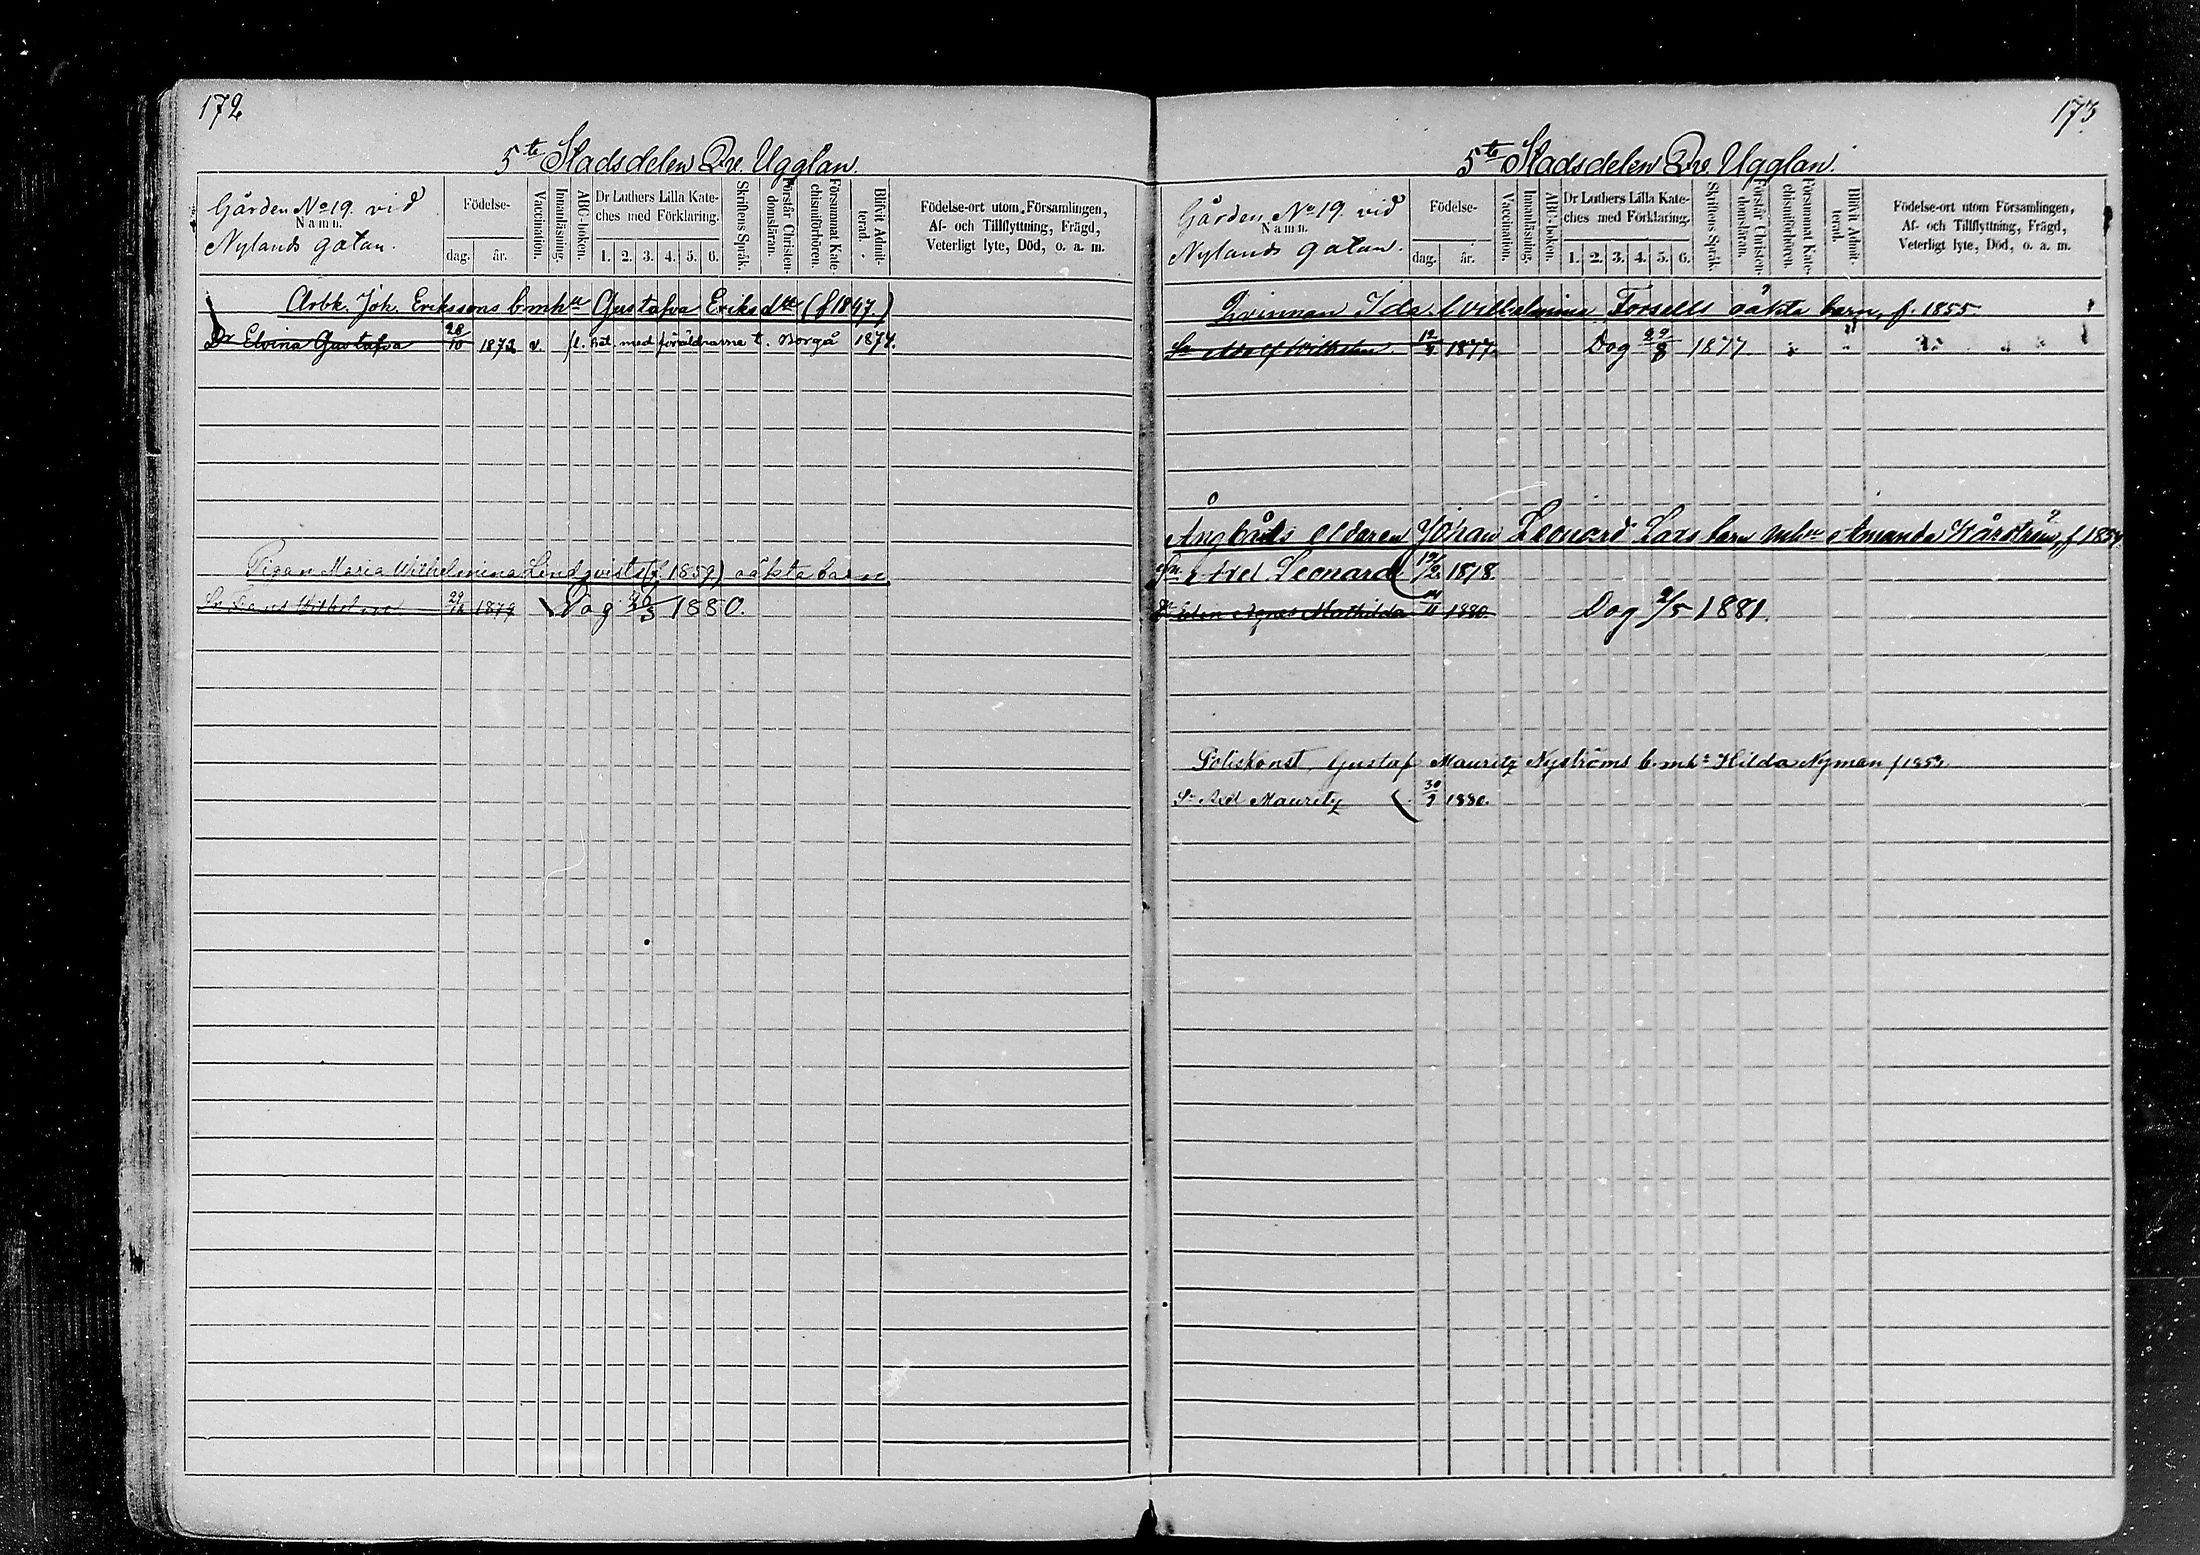 172
5te Stadsdelen Qv. Ugglan.
Gården No 19. vid
Namn.
Nylands gatan.
Födelse-
dag.
år.
Vaccination.
Innanläsning.
ABC-boken.
Dr Luthers Lilla Kate-
ches med Förklaring.
1. 2. 3. 4. 5. 6.
Skriftens Språk.
Förstår Christen-
domsläran.
Försummat Kate-
chismiförhören.
Blifvit Admit-
terad.
Födelse-ort utom Församlingen,
Af- och Tillflyttning, Frägd,
Veterligt lyte, Död, o. a. m.
Arbk. Joh. Erikssons b. mhu Gustafva Eriksdtt (f 1847.)
Dr Elvina Gustafva 28/10 1872 v. fl. med föräldrarne t. Borgå 1874.
Pigan Maria Wilhelmina Lindqvists (f. 1859) oäkta barn
Sn Frans Wilhelm 1879 Dog 1880.
173
5te Stadsdelen Qv. Ugglan.
Gården No 19 vid
Namn.
Nylands gatan.
Födelse-
dag.
år.
Vaccination.
Innanläsning.
ABC-boken.
Dr Luthers Lilla Kate-
ches med Förklaring.
1. 2. 3. 4. 5. 6.
Skriftens Språk.
Förstår Christen-
domsläran.
Försummat Kate-
chismiförhören.
Blifvit Admit-
terad.
Födelse-ort utom Församlingen,
Af- och Tillflyttning, Frägd,
Veterligt lyte, Död, o. a. m.
Qvinnan Ida Vilhelmina Forsells oäkta barn, f. 1855
Sn Adolf Wilhelm. 1877 Dog 29/8 1877
Ångbåts eldaren Johan Leonard barn mhu Amanda
Axel Leonard 1878.
Dr Elin Agnes Mathilda 1880. Dog 2/5 1881.
Poliskonst. Gustaf Mauritz Nyströms b. mhu Hilda Nyman
Sn Axel Mauritz 30/9 1880.